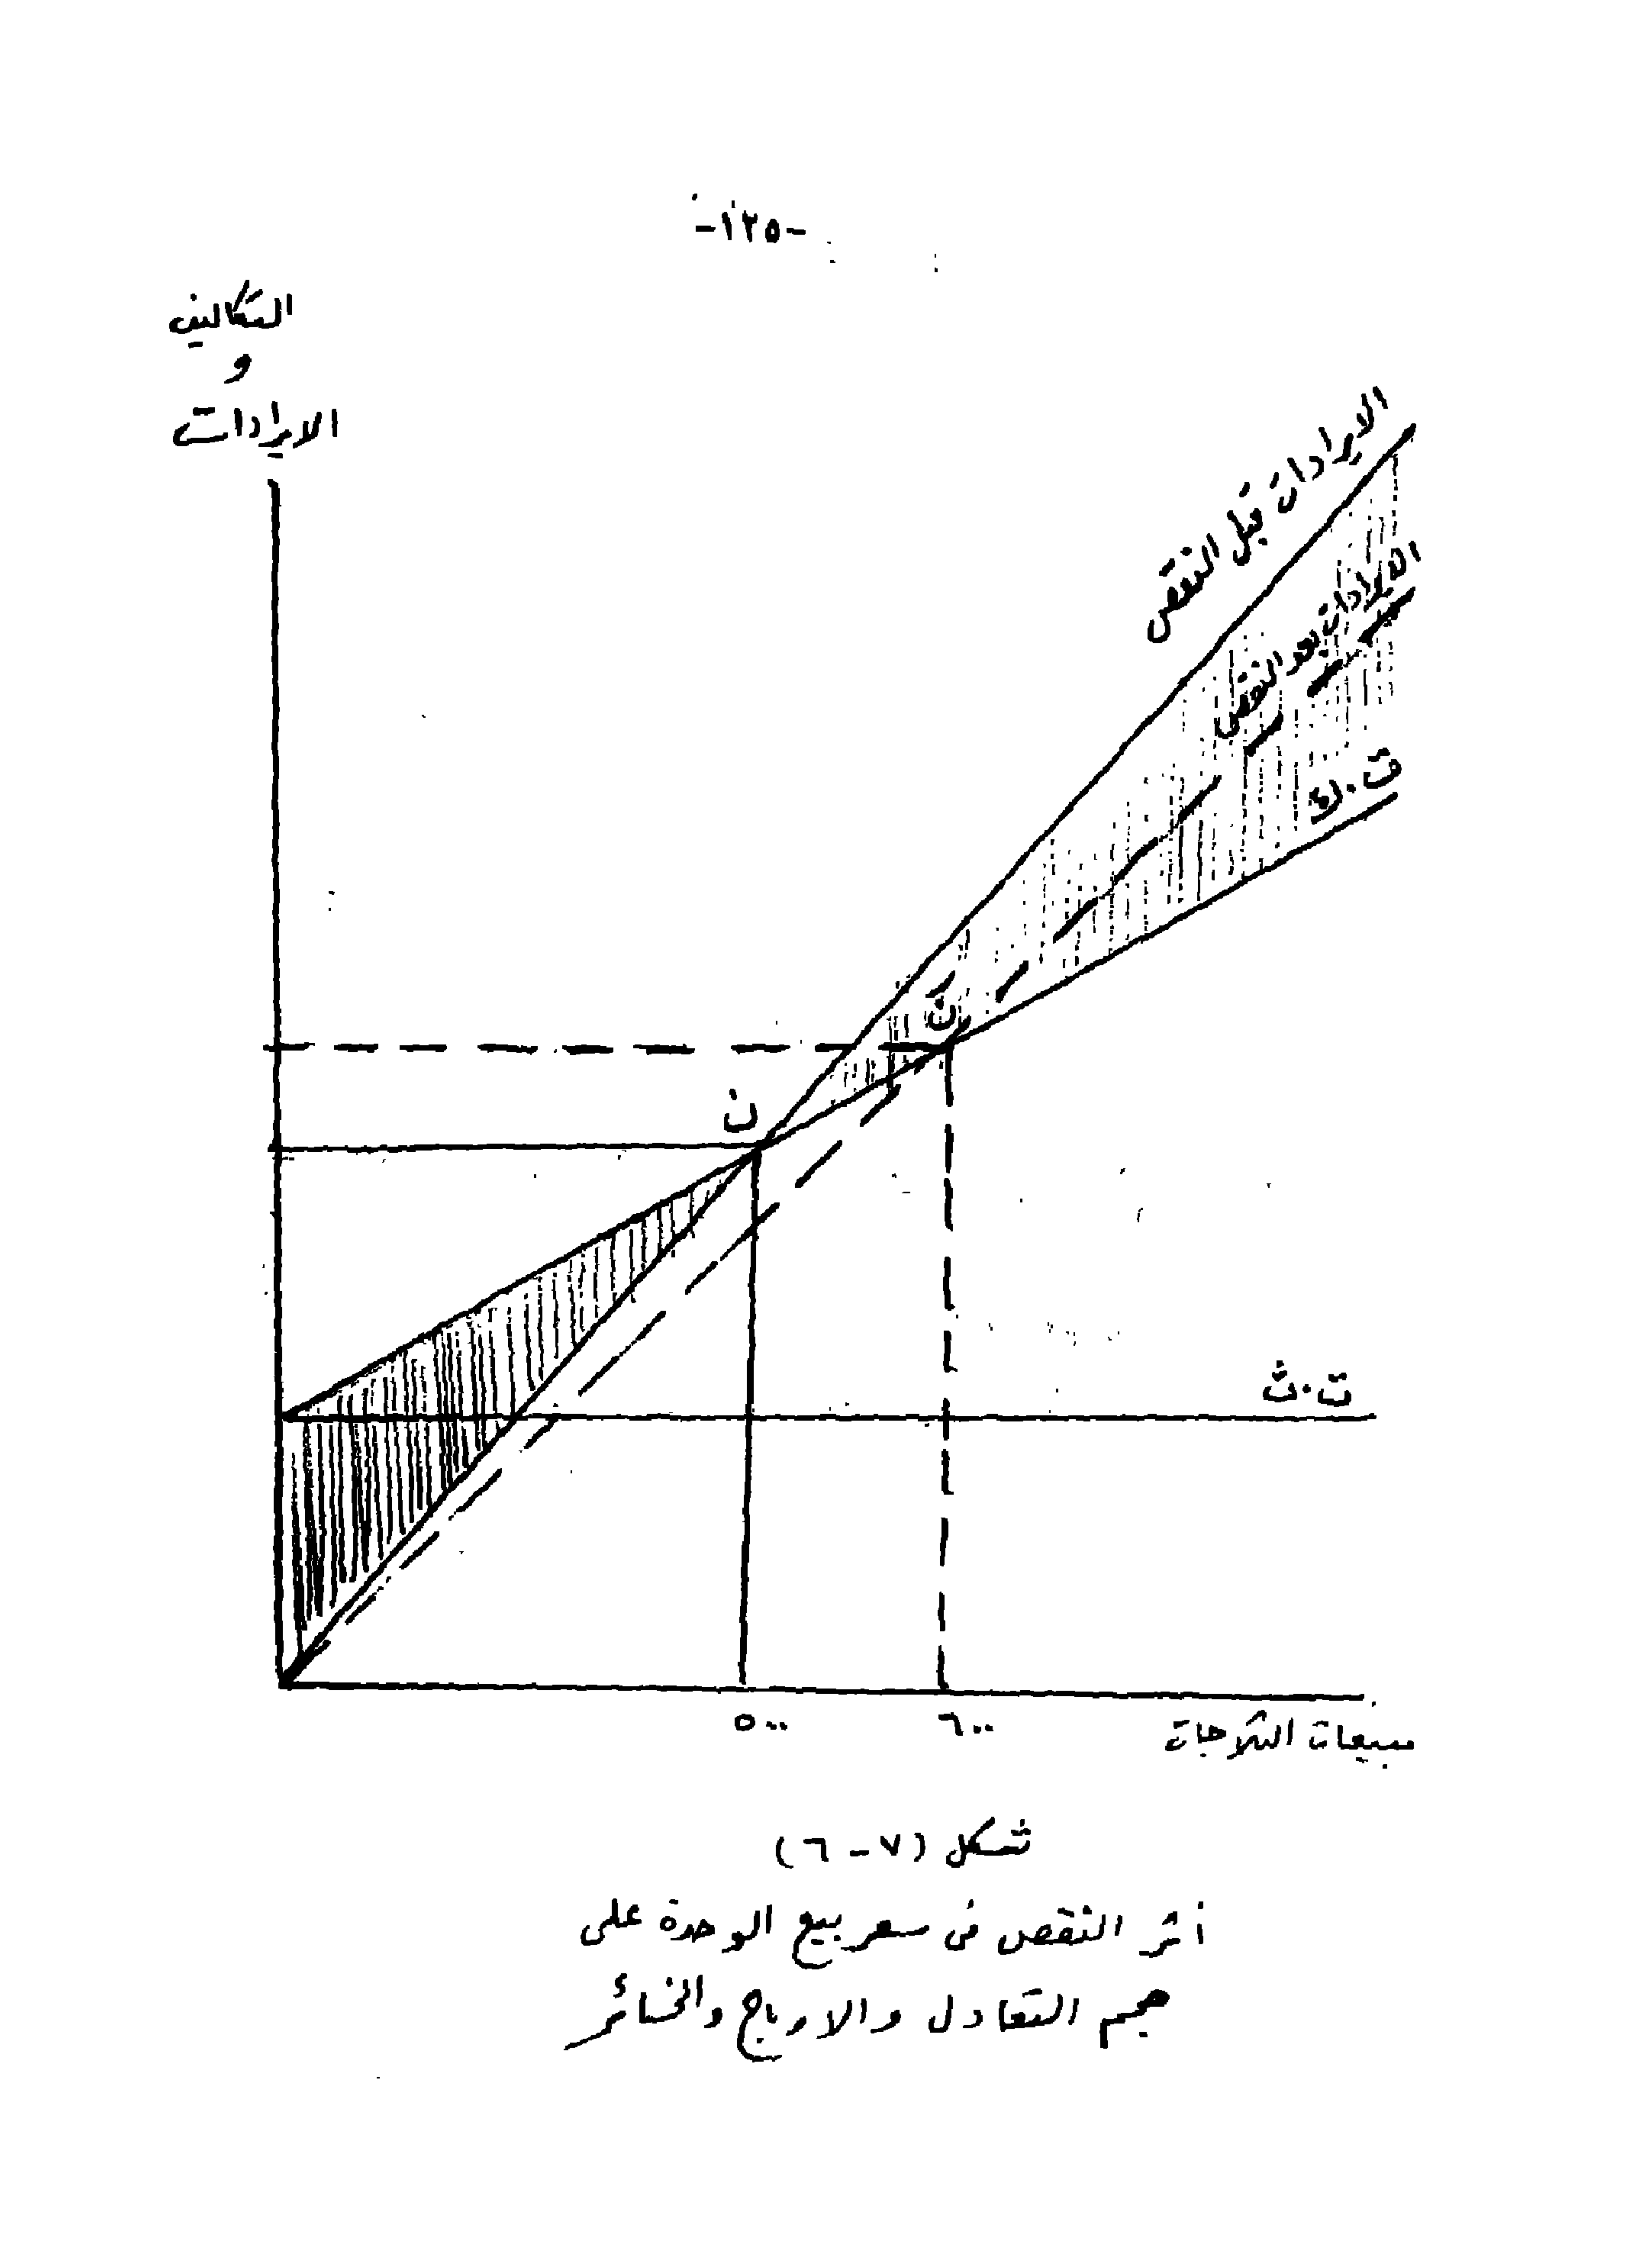 -١٢٥-
التكاليف
و
الايرادات
الايرادات قبل النقص
الايرادات بعد النقص
ت.ك
نَ
ن
ت.ث
٥٠٠
٦٠٠
مبيعات الثلاجات
شكل (٧-٦)
أثر النقص فى سعر بيع الوحدة على
حجم التعادل والارباح والخسائر